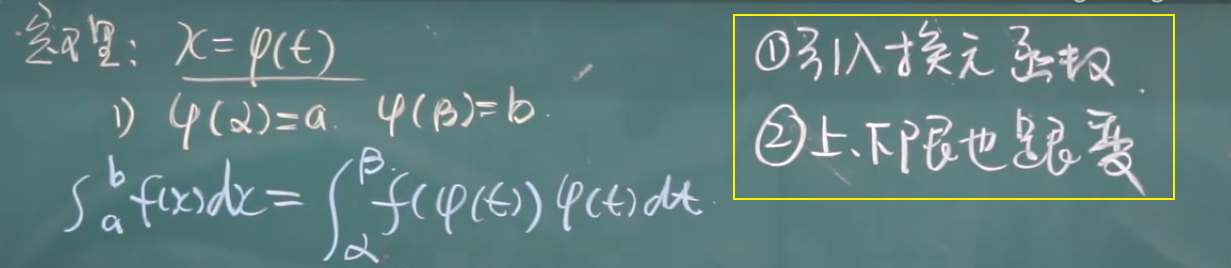 定理: x=φ(t)
1) φ(α)=a. φ(β)=b.
∫_a^b f(x)dx = ∫_α^β f(φ(t)) φ(t) dt.
①引入换元函数.
②上、下限也跟变